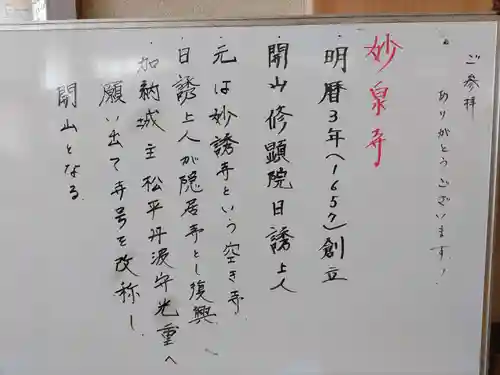 ご参拝
ありがとうございます！
妙泉寺
・明暦3年（1657）創立
・開山 修顕院日誘上人
・元は妙誘寺という空き寺
・日誘上人が隠居寺とし復興
・加納城主 松平丹波守光重へ
願い出て寺号を改称し
開山となる